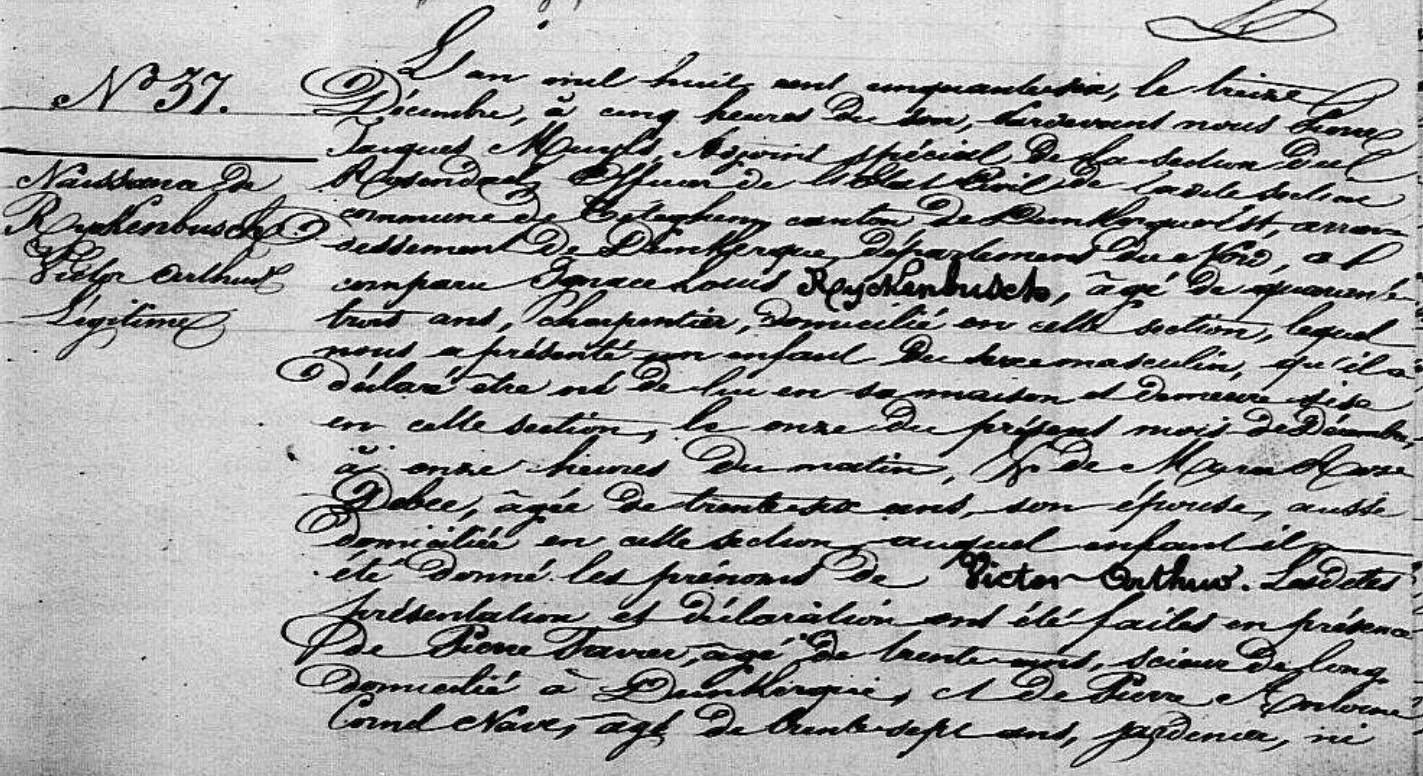 N° 37.
Naissance de
Ryckenbusch
Victor Arthur
Légitime
L'an mil huit cent cinquante six, le treize
Décembre, à cinq heures du soir, pardevant nous Pierre
Jacques Adjoint spécial de la section du
Rosendael Officier de l'Etat Civil de ladite section
commune de Téteghem, canton de Dunkerque Est, arron-
dissement de Dunkerque, département du Nord, est
comparu Ignace Louis Ryckenbusch, âgé de quarante
trois ans, charpentier, domicilié en cette section, lequel
nous a présenté un enfant du sexe masculin, qu'il a
déclaré être né de lui en sa maison et demeure sise
en cette section, le onze du présent mois de Décembre,
à onze heures du matin, & de Marie Rose
Debee, âgée de trente six ans, son épouse, aussi
domiciliée en cette section, auquel enfant il a
été donné les prénoms de Victor Arthur. Lesdites
présentation et déclaration ont été faites en présence
de Pierre âgé de trente ans, scieur de long
domicilié à Dunkerque, et de Pierre Antoine
Cornil Nave, âgé de trente-sept ans, jardinier, ni